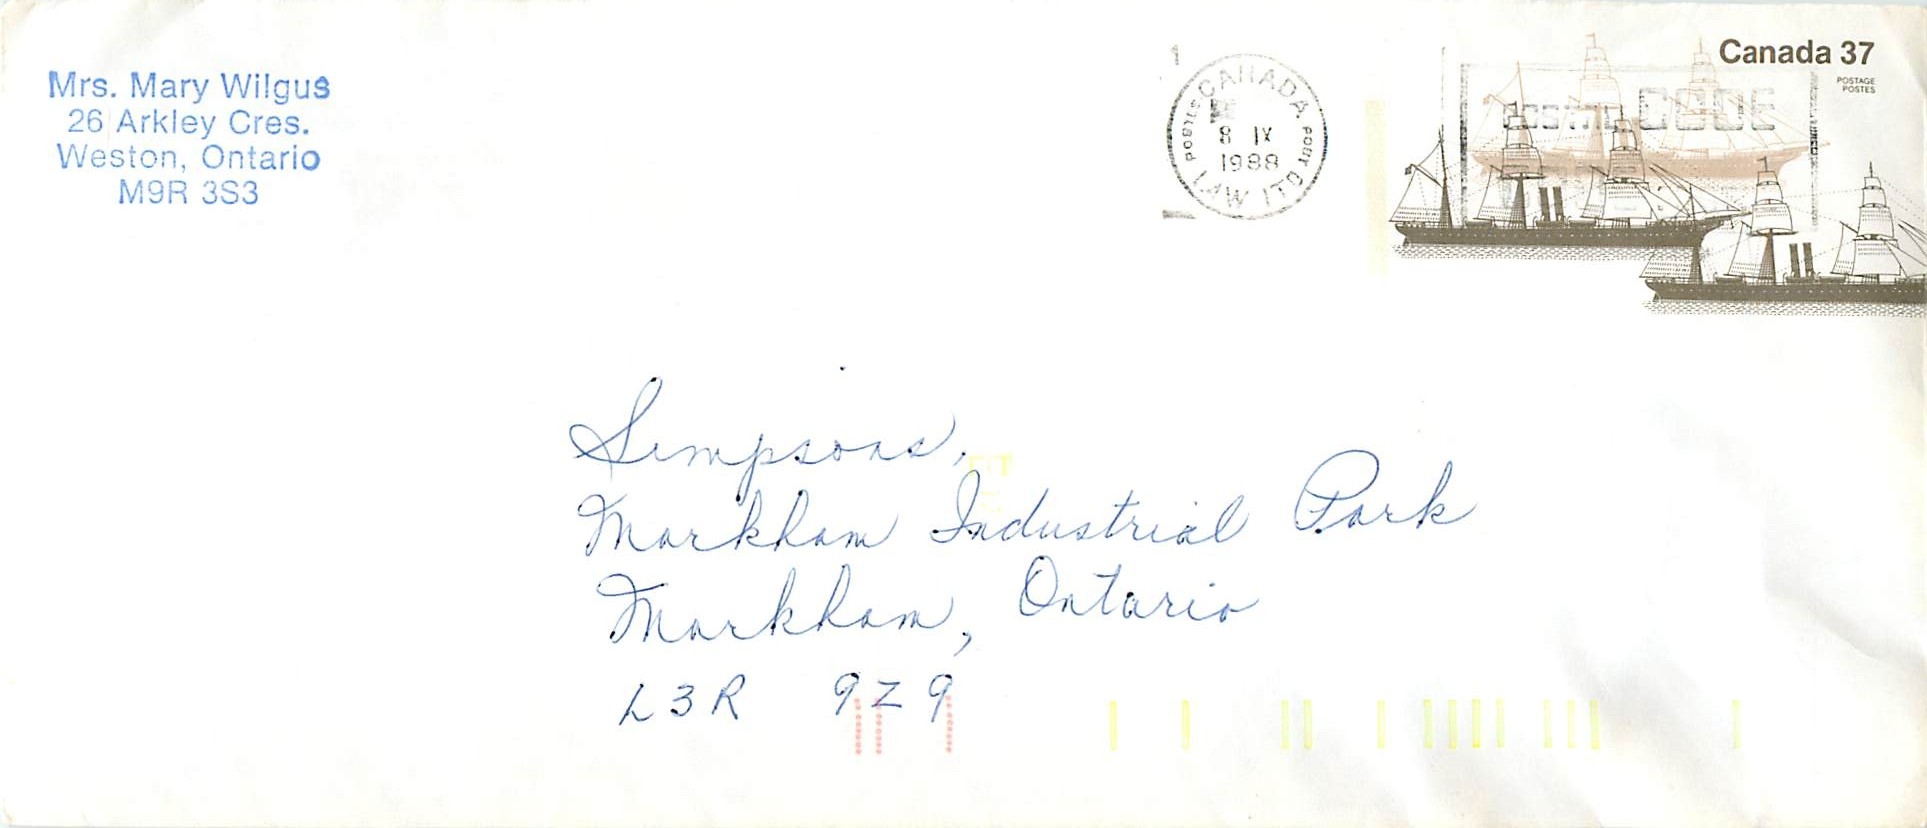 Mrs. Mary Wilgus
26 Arkley Cres.
Weston, Ontario
M9R 3S3
1
CANADA
8 IX
1988
Canada 37
POSTAGE
POSTES
CODE
Simpsons,
Markham Industrial Park
Markham, Ontario
L3R 9Z9